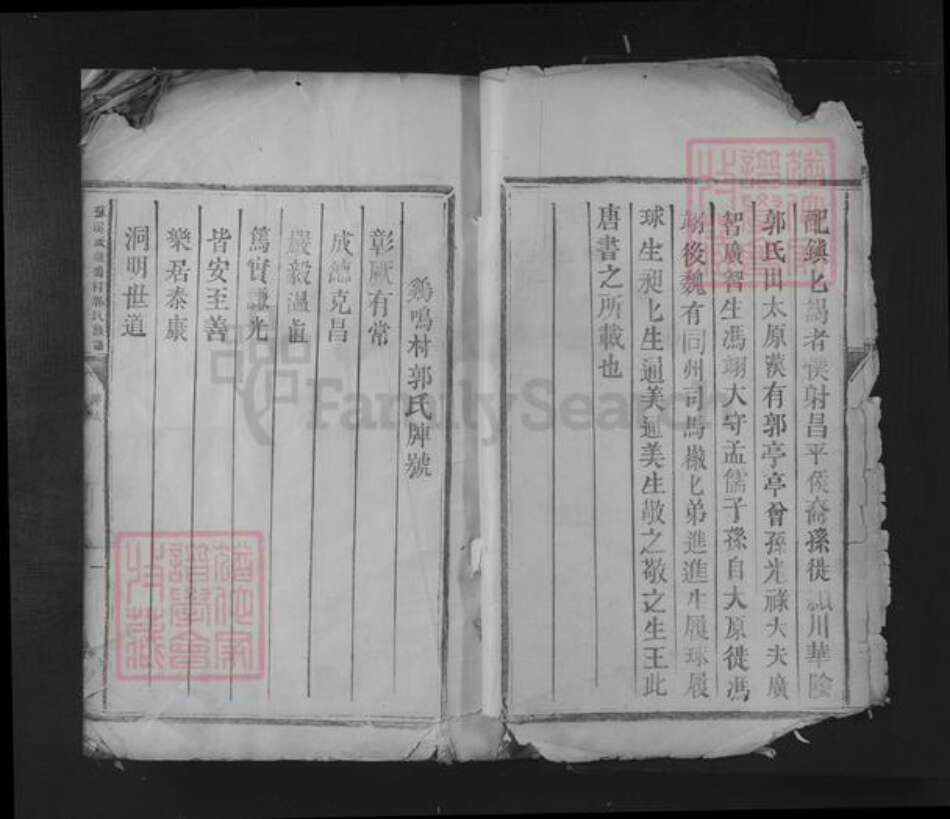 配鎮匕謁者僕射昌平侯裔孫徙潁川華陰
郭氏出太原漢有郭亭亭曾孫光祿大夫廣
智廣智生馮翊大守孟儒子孫自大原徙馮
翊後魏有同州司馬徽匕弟進進生履球履
球生昶匕生通美通美生敬之敬之生王此
唐書之所載也
鷄鳴村郭氏牌號
彰厥有常
成德克昌
嚴毅溫直
篤實謙光
皆安至善
樂居泰康
洞明世道
FamilySearch
譜學會
收藏